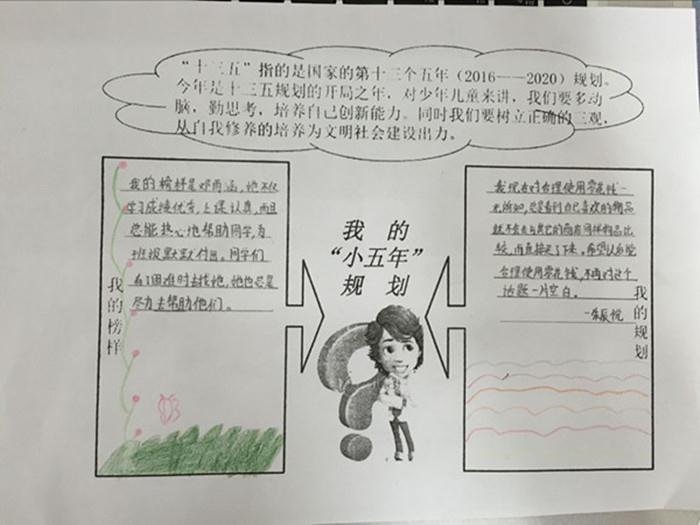 “十三五”指的是国家的第十三个五年（2016——2020）规划。
今年是十三五规划的开局之年，对少年儿童来讲，我们要多动
脑，勤思考，培养自己创新能力。同时我们要树立正确的三观，
从自我修养的培养为文明社会建设出力。
我的榜样
我的榜样是邓雨涵，她不仅
学习成绩优秀，上课认真，而且
总能热心地帮助同学，为
班级默默付出。同学们
有了困难时去找她，她也总是
尽力去帮助他们。
我 的
“小五年”
规 划
我现在对合理使用零花钱一
无所知，总是看到自己喜欢的物品
就不会去与其它的商店同样物品比
较，而直接买了下来。希望以后能
合理使用零花钱，不再对这个
话题一片空白。
我的规划